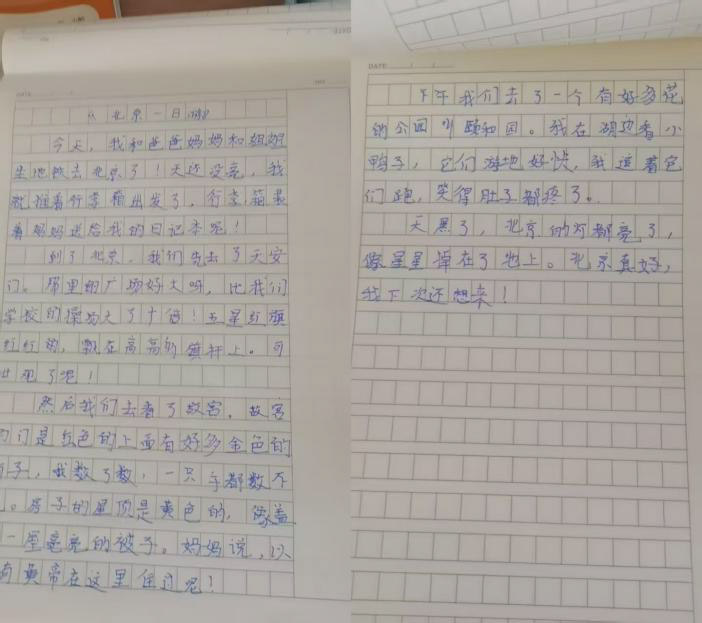 《北京一日游》
今天，我和爸爸妈妈和姐姐
坐地铁去北京了！天还没亮，我
就推着行李箱出发了，行李箱装
着妈妈送给我的日记本呢！
到了北京，我们先去了天安
门。那里的广场好大呀，比我们
学校的操场大了十倍！五星红旗
红红的，飘在高高的旗杆上。可
壮观了呢！
然后我们去看了故宫，故宫
的门是红色的上面有好多金色的
子，我数了数，一只手都数不
。房子的屋顶是黄色的，像盖
一层亮亮的被子。妈妈说，以
前黄帝在这里住过呢！
DATE
下午我们去了一个有好多花
的公园叫颐和园。我在湖边看小
鸭子，它们游地好快，我追着它
们跑，笑得肚子都疼了。
天黑了，北京的灯都亮了，
像星星掉在了地上。北京真好，
我下次还想来！